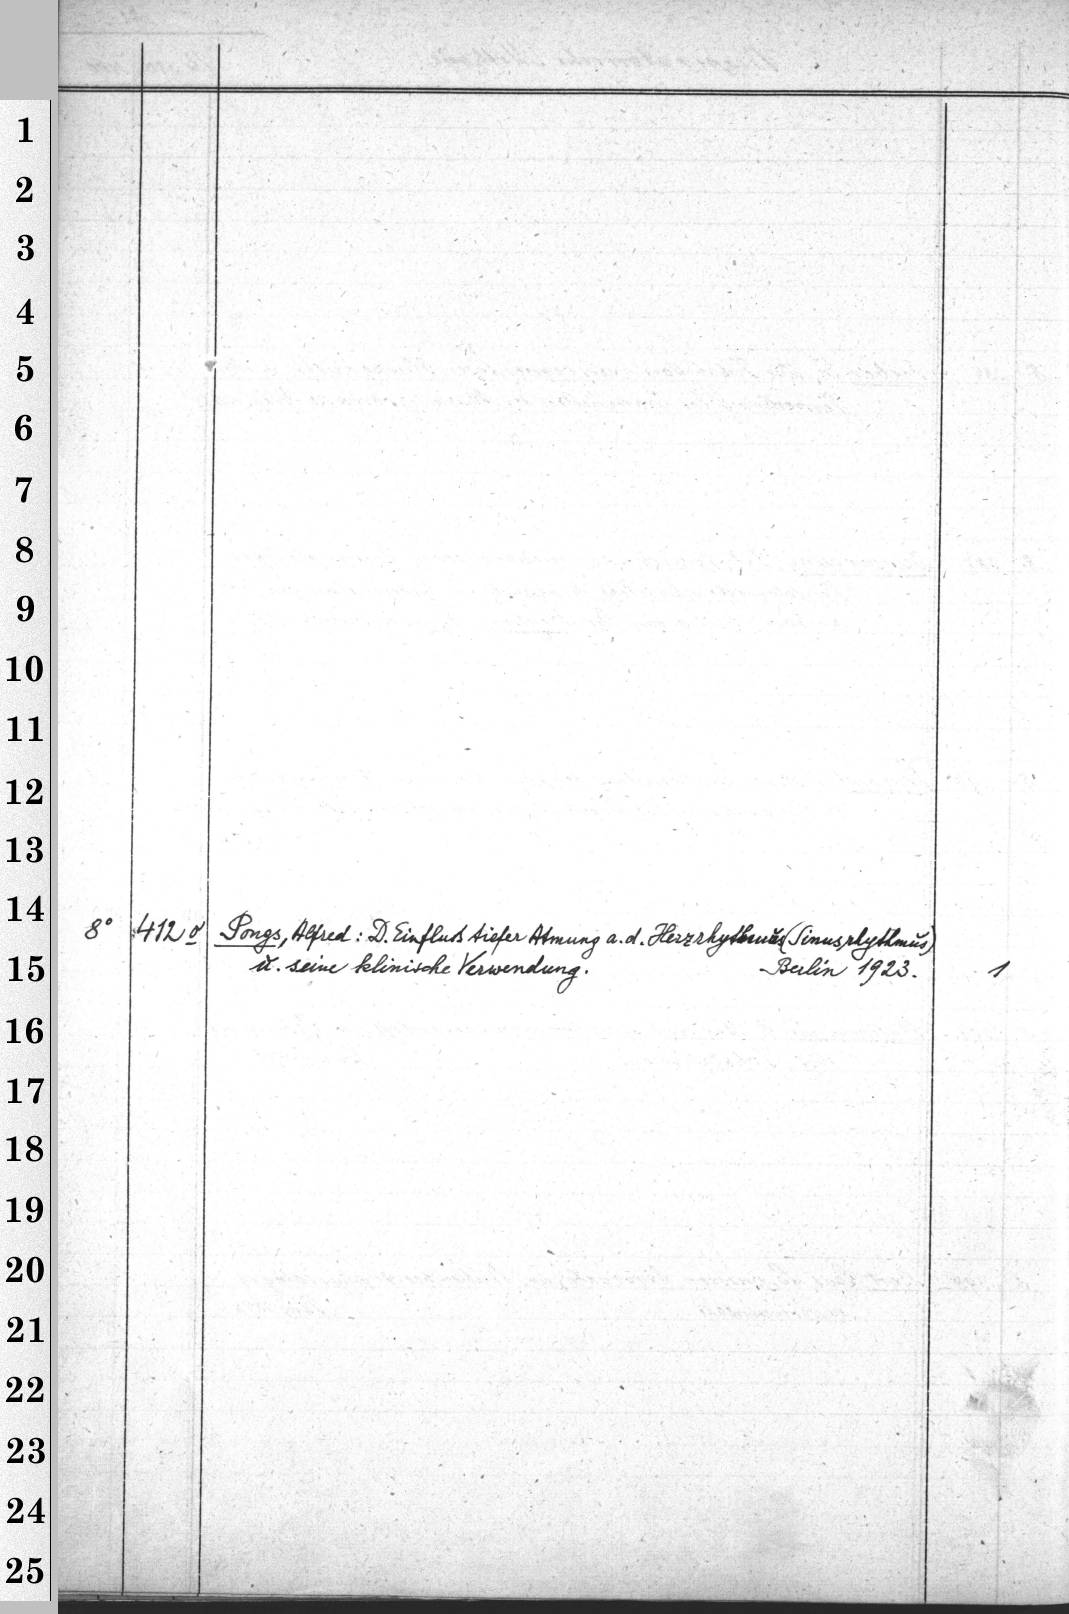 1
2
3
4
5
6
7
8
9
10
11
12
13
14
8° 412 o Pongs, Alfred: D. Einfluß tiefer Atmung a. d. Herzrhythmus (Sinusrhythmus)
15 u. seine klinische Verwendung. Berlin 1923. 1
16
17
18
19
20
21
22
23
24
25